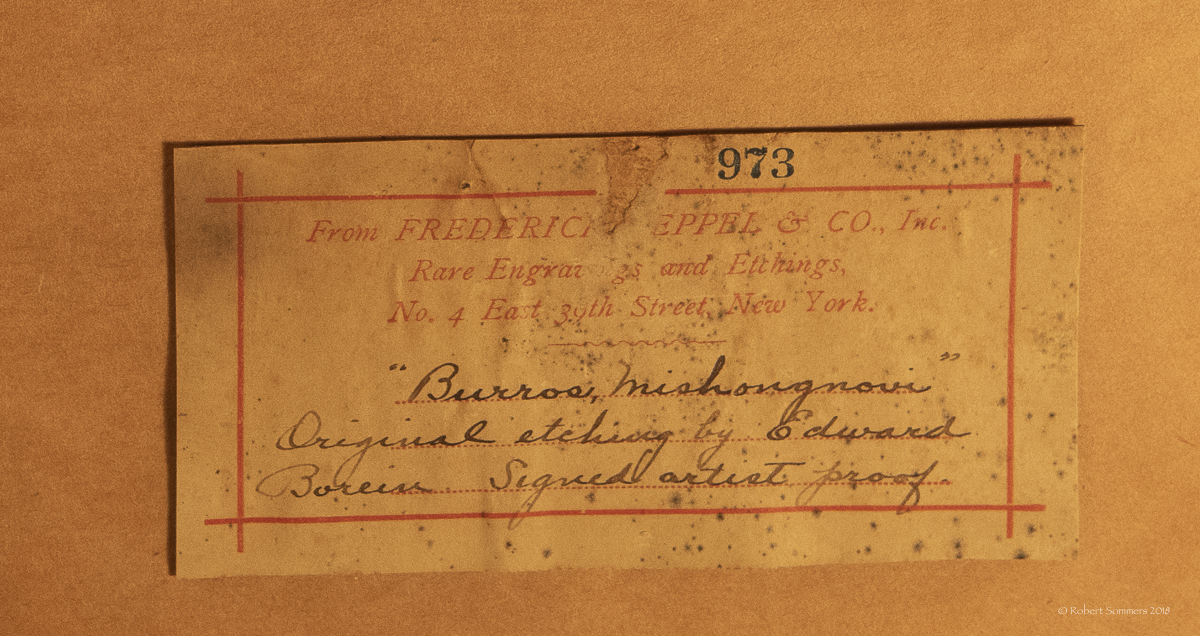 973
From FREDERIC EPPEL & CO., Inc.
Rare Engra gs and Etchings,
No. 4 East 39th Street, New York.
"Burros, Mishongnovi"
Original etching by Edward
Borein Signed artist proof.
© Robert Sommers 2018